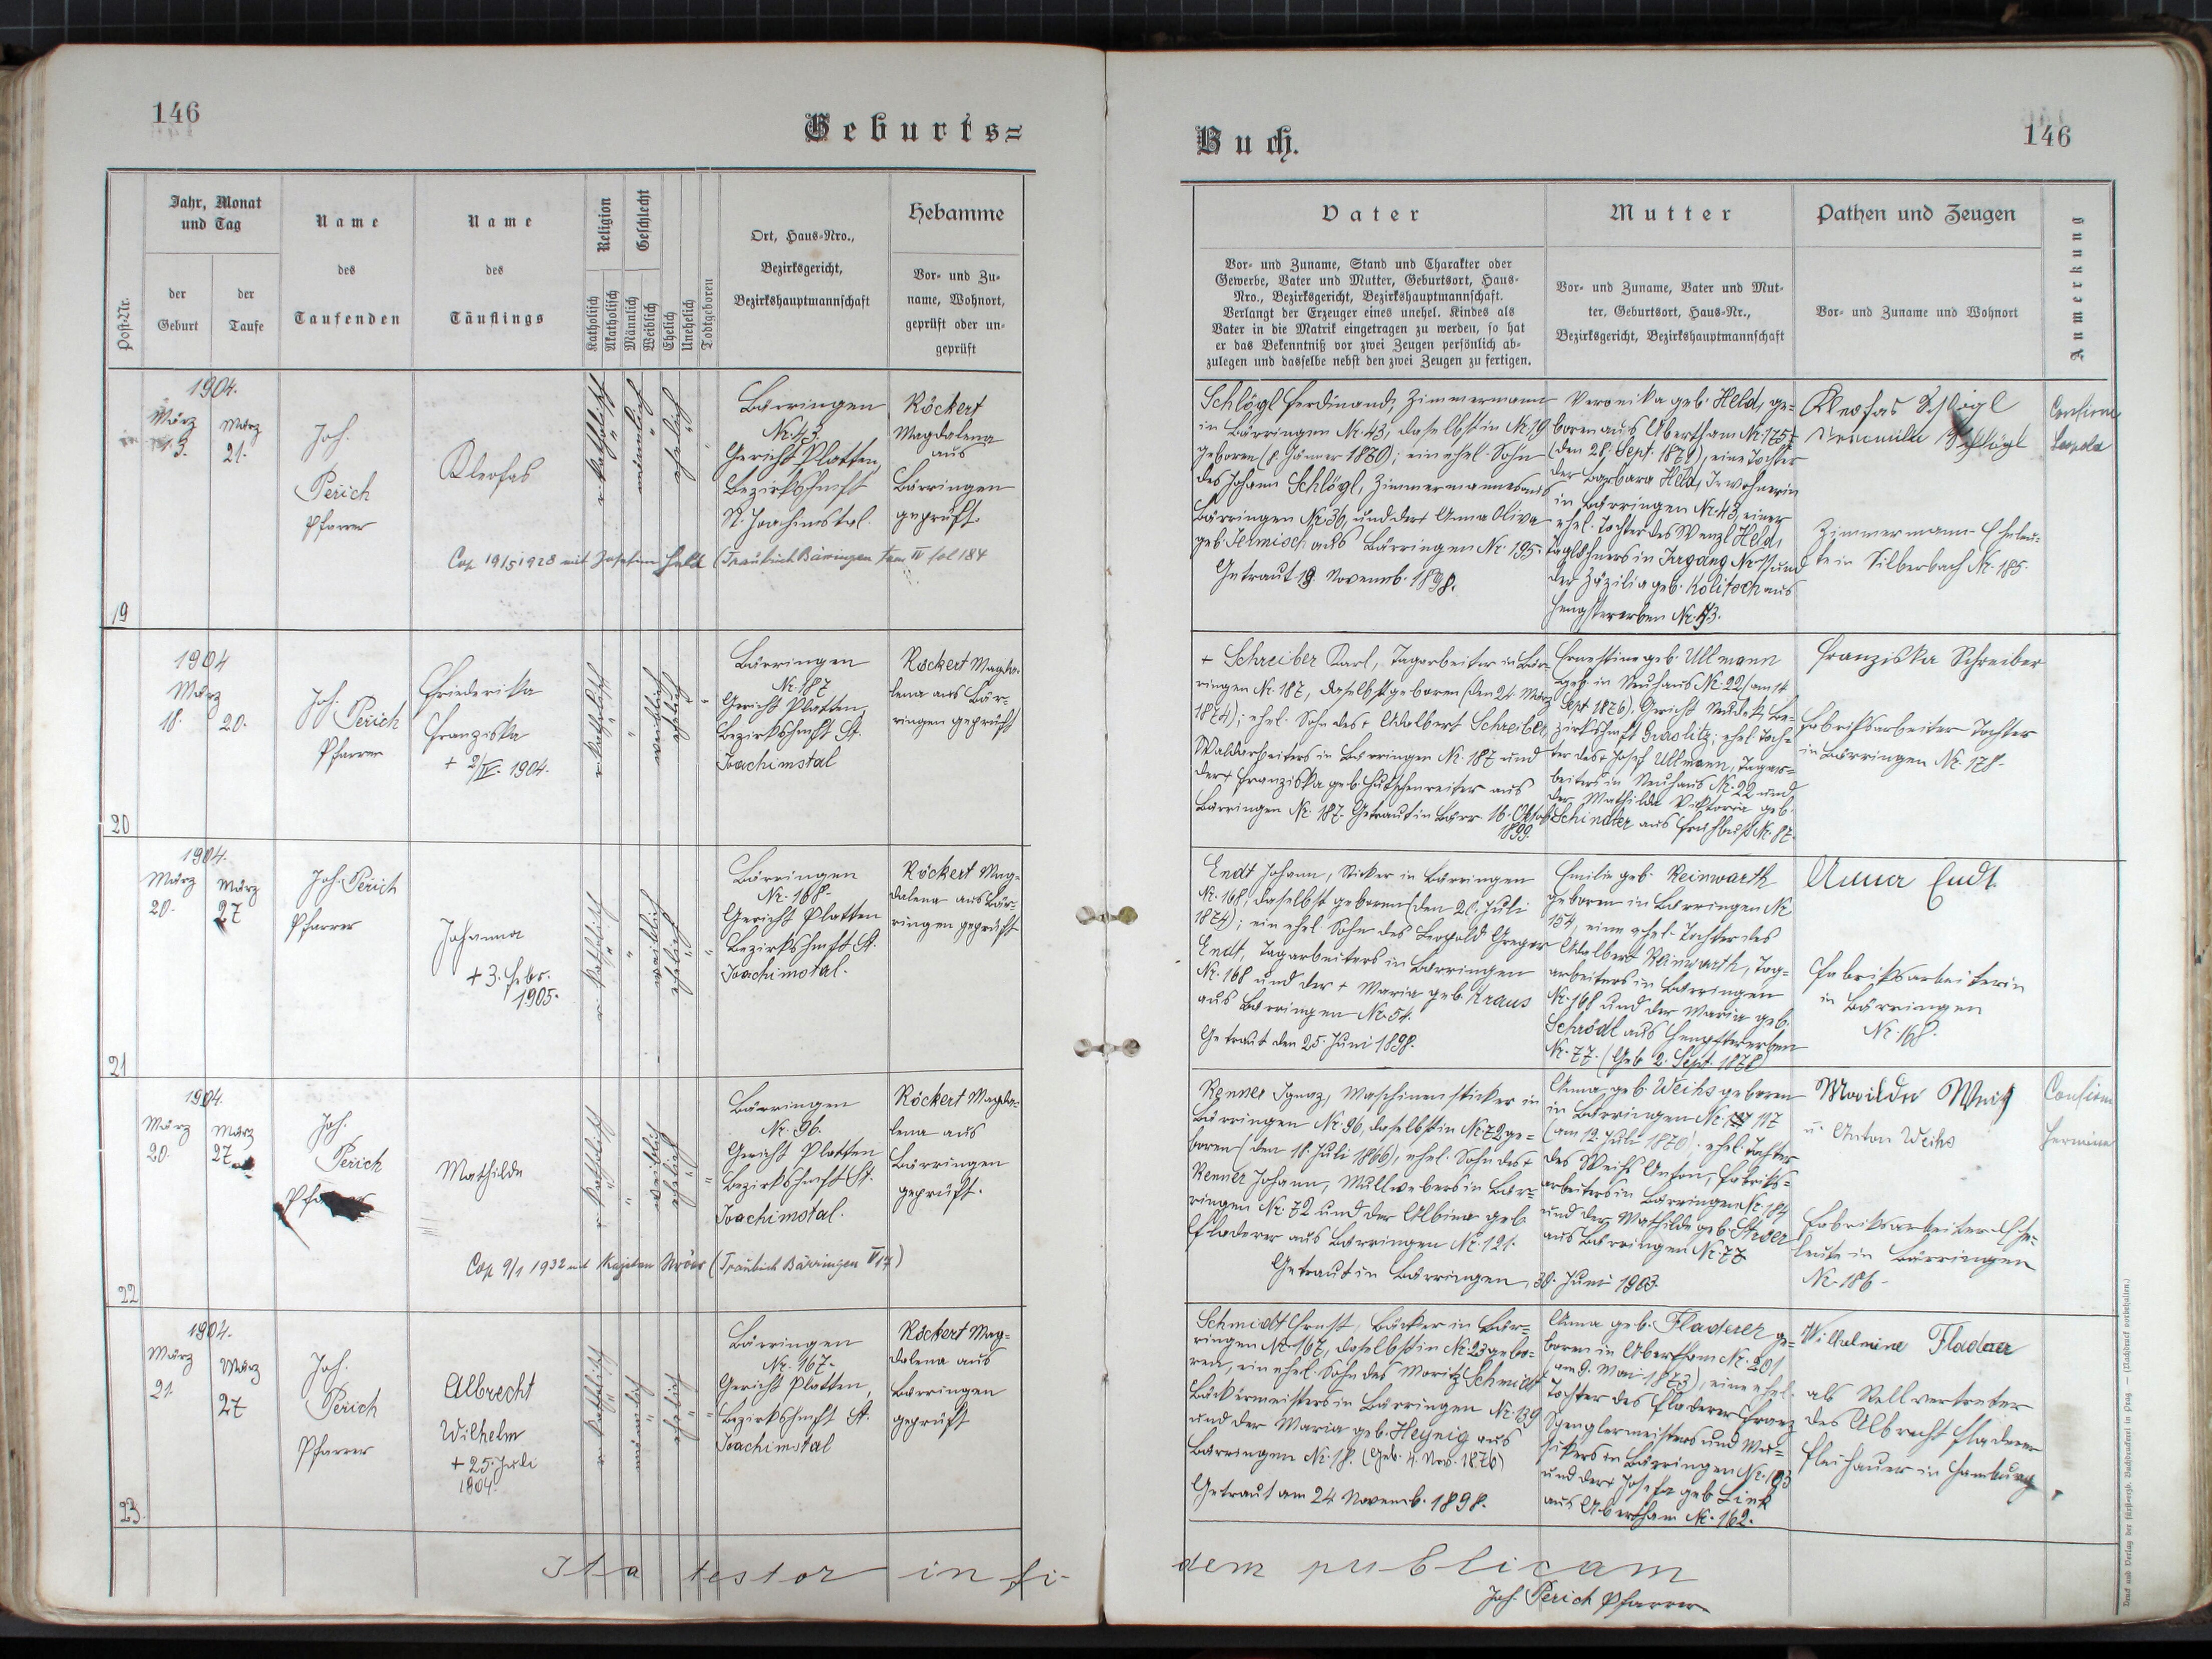 146
Geburts=
Post-Nr.
Jahr, Monat
und Tag
der
Geburt
der
Taufe
Name
des
Taufenden
Name
des
Täuflings
Religion
Katholisch
Akatholisch
Geschlecht
Männlich
Weiblich
Ehelich
Unehelich
Todtgeboren
Ort, Haus-Nro.,
Bezirksgericht,
Bezirkshauptmannschaft
Hebamme
Vor- und Zu-
name, Wohnort,
geprüft oder un-
geprüft
19
1904.
März
13.
März
21.
Joh.
Perich
Pfarrer
Kleofas
r. katholisch
männlich
ehelich
Bärringen
Nr. 43
Gericht Platten,
Bezirkshmft
St. Joachimstal.
Röckert
Magdalena
aus
Bärringen
geprüft.
Cop 19/5 1928 mit Josefine Held (Traubuch Bärringen tom IV fol 184
20
1904
März
18.
20.
Joh. Perich
Pfarrer
Friederika
Franziska
+ 2/IV. 1904.
r. katholisch
weiblich
ehelich
Bärringen
Nr. 187
Gericht Platten,
Bezirkshmft St.
Joachimstal
Röckert Magda-
lena aus Bär-
ringen geprüft
21
1904.
März
20.
März
27
Joh. Perich
Pfarrer
Johanna
+ 3. Febr.
1905.
r. katholisch
weiblich
ehelich
Bärringen
Nr. 168.
Gericht Platten
Bezirkshmft St.
Joachimstal.
Röckert Mag-
dalena aus Bär-
ringen geprüft
22
1904.
März
20.
März
27
Joh.
Perich
Mathilde
r. katholisch
weiblich
ehelich
Bärringen
Nr. 96.
Gericht Platten
Bezirkshmft St.
Joachimstal.
Röckert Magda-
lena aus
Bärringen
geprüft.
Cop 9/1 1932 mit (Traubuch Bärringen V 17)
23.
1904.
März
21.
März
27
Joh.
Perich
Pfarrer
Albrecht
Wilhelm
+ 25. Juli
1904.
r. katholisch
männlich
ehelich
Bärringen
Nr. 167.
Gericht Platten,
Bezirkshmft St.
Joachimstal
Röckert Mag-
dalena aus
Bärringen
geprüft
Ita testor in fi-
Buch.
146
Vater
Vor- und Zuname, Stand und Charakter oder
Gewerbe, Vater und Mutter, Geburtsort, Haus-
Nro., Bezirksgericht, Bezirkshauptmannschaft.
Verlangt der Erzeuger eines unehel. Kindes als
Vater in die Matrik eingetragen zu werden, so hat
er das Bekenntniß vor zwei Zeugen persönlich ab-
zulegen und dasselbe nebst den zwei Zeugen zu fertigen.
Mutter
Vor- und Zuname, Vater und Mut-
ter, Geburtsort, Haus-Nr.,
Bezirksgericht, Bezirkshauptmannschaft
Pathen und Zeugen
Vor- und Zuname und Wohnort
Anmerkung
Schlögl Ferdinand, Zimmermann
in Bärringen Nr. 43, daselbst in Nr. 19
geboren (8. Jänner 1870); ein ehel. Sohn
des Johann Schlögl, Zimmermannes aus
Bärringen Nr. 36, und der + Anna Oliva
geb. Sermisch aus Bärringen Nr. 195.
Getraut 19 Novemb. 1898.
Veronika geb. Held, ge-
boren aus Abertham Nr. 175
(den 28. Sept. 1872), eine Tochter
der Barbara Held, Inwohnerin
in Bärringen Nr. 43, einer
ehel. Tochter des Wenzl Held,
Taglöhners in Irrgang Nr. und
der Zäzilia geb. Kolitsch aus
Hengstererben Nr. 43.
Kleofas Schlögl
Schlögl
Zimmermann-Eheleu-
te in Silberbach Nr. 185.
+ Schreiber Karl, Tagarbeiter in Bär-
ringen Nr. 187, daselbst geboren (den 21. März
1874); ehel. Sohn des + Adalbert Schreiber
Waldarbeiters in Bärringen Nr. 187 und
der + Franziska geb. Hutschenreiter aus
Bärringen Nr. 187. Getraut in Bärr. 16. Oktob.
1899.
Ernestine geb. Ullmann
geb. in Neuhaus Nr. 22 (am 14
Sept 1876). Gericht Neudek, Be-
zirkshmft Graslitz; ehel. Toch-
ter des + Josef Ullmann, Tagar-
beiters in Neuhaus Nr. 22 und
der Mathilde Viktoria geb.
Schindler aus Frühbuß Nr. 87.
Franziska Schreiber
Fabriksarbeiters Tochter
in Bärringen Nr. 178.
Endt Johann, Sticker in Bärringen
Nr. 168, daselbst geboren (den 28. Juli
1874); ein ehel. Sohn des Leopold Gregor
Endt, Tagarbeiters in Bärringen
Nr. 168 und der + Maria geb. Kraus
aus Bärringen Nr. 54.
Getraut den 25. Juni 1898.
Emilie geb. Reinwarth
geboren in Bärringen Nr.
154, eine ehel. Tochter des
Adalbert Reinwarth, Tag-
arbeiters in Bärringen
Nr. 168 und der Maria geb.
Schrödl aus Hengstererben
Nr. 77. (Geb. 2. Sept. 1878)
Anna Endt
Fabriksarbeiterin
in Bärringen
Nr. 168.
Renner Ignaz, Maschinensticker in
Bärringen Nr. 96, daselbst in Nr. 72 ge-
boren (den 18. Juli 1866), ehel. Sohn des +
Renner Johann, Müllwebers in Bär-
ringen Nr. 72 und der Albina geb.
Fladerer aus Bärringen Nr. 121.
Getraut in Bärringen, 30. Juni 1903.
Anna geb. Weihs geboren
in Bärringen Nr. 117
(am 12. Juli 1870); ehel. Tochter
des Weihs Anton, Fabriks-
arbeiters in Bärringen Nr. 184
und der Mathilde geb.
aus Bärringen Nr. 77
u. Anton Weihs
Fabriksarbeiter-Ehe-
leute in Bärringen
Nr. 186.
Hermine
Schmidt Ernst, Bäcker in Bär-
ringen Nr. 167, daselbst in Nr. 23 gebo-
ren, ein ehel. Sohn des Moritz Schmidt
Bäckermeisters in Bärringen Nr. 139
und der Maria geb. Heynig aus
Bärringen Nr. 18. (Geb. 4. Nov. 1876)
Getraut am 24 Novemb. 1898.
Anna geb. Fladerer ge-
boren in Abertham Nr. 201
(am 9. Mai 1873), eine ehel.
Tochter des Fladerer Franz
Spenglermeisters und Mu-
sikers in Bärringen Nr. 193
und der + Josefa geb. Link
aus Abertham Nr. 162.
Wilhelmine Fladerer
als Stellvertreter
des Albrecht Fladerer
in Hamburg
dem publicam
Joh. Perich Pfarrer
Druck und Verlag der fürsterzb. Buchdruckerei in Prag — (Nachdruck vorbehalten.)